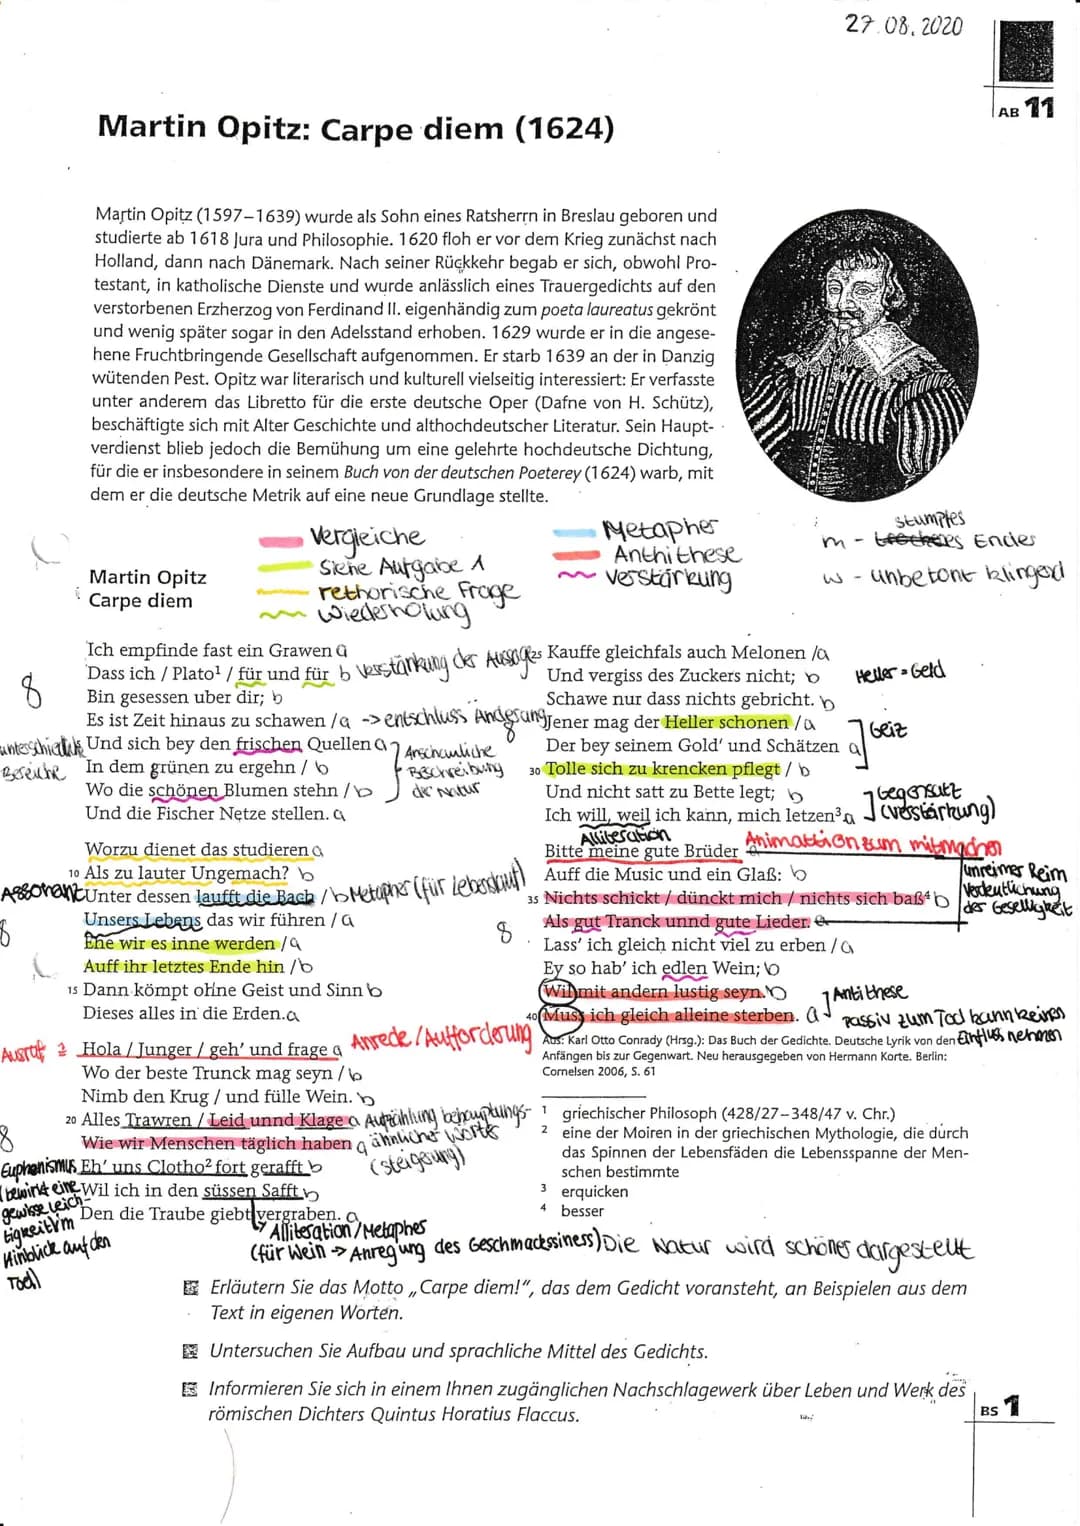 27.08.2020
AB 11
Martin Opitz: Carpe diem (1624)
Martin Opitz (1597–1639) wurde als Sohn eines Ratsherrn in Breslau geboren und
studierte ab 1618 Jura und Philosophie. 1620 floh er vor dem Krieg zunächst nach
Holland, dann nach Dänemark. Nach seiner Rückkehr begab er sich, obwohl Pro-
testant, in katholische Dienste und wurde anlässlich eines Trauergedichts auf den
verstorbenen Erzherzog von Ferdinand II. eigenhändig zum poeta laureatus gekrönt
und wenig später sogar in den Adelsstand erhoben. 1629 wurde er in die angese-
hene Fruchtbringende Gesellschaft aufgenommen. Er starb 1639 an der in Danzig
wütenden Pest. Opitz war literarisch und kulturell vielseitig interessiert: Er verfasste
unter anderem das Libretto für die erste deutsche Oper (Dafne von H. Schütz),
beschäftigte sich mit Alter Geschichte und althochdeutscher Literatur. Sein Haupt-
verdienst blieb jedoch die Bemühung um eine gelehrte hochdeutsche Dichtung,
für die er insbesondere in seinem Buch von der deutschen Poeterey (1624) warb, mit
dem er die deutsche Metrik auf eine neue Grundlage stellte.
Vergleiche
Siehe Aufgabe 1
rethorische Frage
Wiederholung
Metapher
Anthithese
Verstärkung
stumpfes
m - Endes
w - unbetont klingend
Martin Opitz
Carpe diem
Ich empfinde fast ein Grawen a
Dass ich / Plato¹ / für und für b Verstärkung der Aussage
8
Bin gesessen uber dir; b
Es ist Zeit hinaus zu schawen / a -> entschluss Änderung
unterschiedliche Bereiche
Und sich bey den frischen Quellen a
In dem grünen zu ergehn / b
Wo die schönen Blumen stehn / b
Anschauliche Beschreibung der Natur
Und die Fischer Netze stellen. a
Worzu dienet das studieren a
10 Als zu lauter Ungemach? b
Assonant Unter dessen laufft die Bach / b Metapher (für Lebenslauf)
8 Unsers Lebens das wir führen / a
Ehe wir es inne werden / a
Auff ihr letztes Ende hin / b
15 Dann kömpt ohne Geist und Sinn b
Dieses alles in die Erden. a
Ausruf Hola / Junger / geh' und frage a Anrede / Aufforderung
Wo der beste Trunck mag seyn / b
Nimb den Krug / und fülle Wein. b
20 Alles Trawren / Leid unnd Klage a Aufzählung behauptungs-
8 Wie wir Menschen täglich haben a ähnlicher Worte
(steigerung)
Euphemismus Eh' uns Clotho² fort gerafft b
(bewirkt eine gewisse Leich-
tigkeit im Hinblick auf den Tod)
Wil ich in den süssen Safft b
Den die Traube giebt vergraben. a
Alliteration / Metapher
(für Wein -> Anregung des Geschmackssinness)
25 Kauffe gleichfals auch Melonen / a
Und vergiss des Zuckers nicht; b
Heller = Geld
Schawe nur dass nichts gebricht. b
8 Jener mag der Heller schonen / a
Der bey seinem Gold' und Schätzen a
Geiz
30 Tolle sich zu krencken pflegt / b
Und nicht satt zu Bette legt; b
Ich will, weil ich kann, mich letzen³ a
Gegensatz (Verstärkung)
Alliteration
Bitte meine gute Brüder a Animattion zum mitmachen
Auff die Music und ein Glaß: b
35 Nichts schickt / dünckt mich / nichts sich baß⁴ b
Als gut Tranck unnd gute Lieder. a
unreiner Reim
Verdeutlichung
der Geselligkeit
8 Lass' ich gleich nicht viel zu erben / a
Ey so hab' ich edlen Wein; b
Wil mit andern lustig seyn. b
40 Muss ich gleich alleine sterben. a
Antithese
Passiv zum Tod kann keinen
Einfluss nehmen
Aus: Karl Otto Conrady (Hrsg.): Das Buch der Gedichte. Deutsche Lyrik von den
Anfängen bis zur Gegenwart. Neu herausgegeben von Hermann Korte. Berlin:
Cornelsen 2006, S. 61
1 griechischer Philosoph (428/27–348/47 v. Chr.)
2 eine der Moiren in der griechischen Mythologie, die durch
das Spinnen der Lebensfäden die Lebensspanne der Men-
schen bestimmte
3 erquicken
4 besser
Die Natur wird schöner dargestellt
Erläutern Sie das Motto „Carpe diem!", das dem Gedicht voransteht, an Beispielen aus dem
Text in eigenen Worten.
Untersuchen Sie Aufbau und sprachliche Mittel des Gedichts.
Informieren Sie sich in einem Ihnen zugänglichen Nachschlagewerk über Leben und Werk des
römischen Dichters Quintus Horatius Flaccus.
BS 1